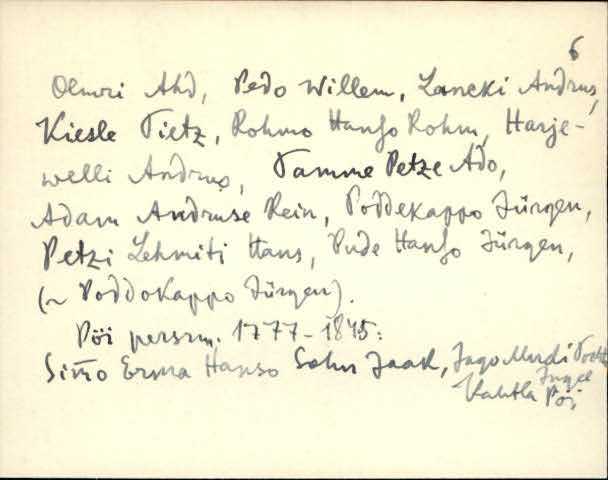 6
Olmri Ahd, Pedo Willem, Lancki Andrus,
Kiesle Tietz, Rohmo Hanso Rohm, Harje-
welli Andrus, Tamme Petze Ado,
Adam Andruse Rein, Poddekappo Jürgen,
Petzi Lehmiti Hans, Pude Hanso Jürgen,
(~ Poddokappo Jürgen).
Pöi persrm. 1777-1845:
Simo Erma Hanso Sohn Jaak, Jago Murdi
Kahtla Pöi